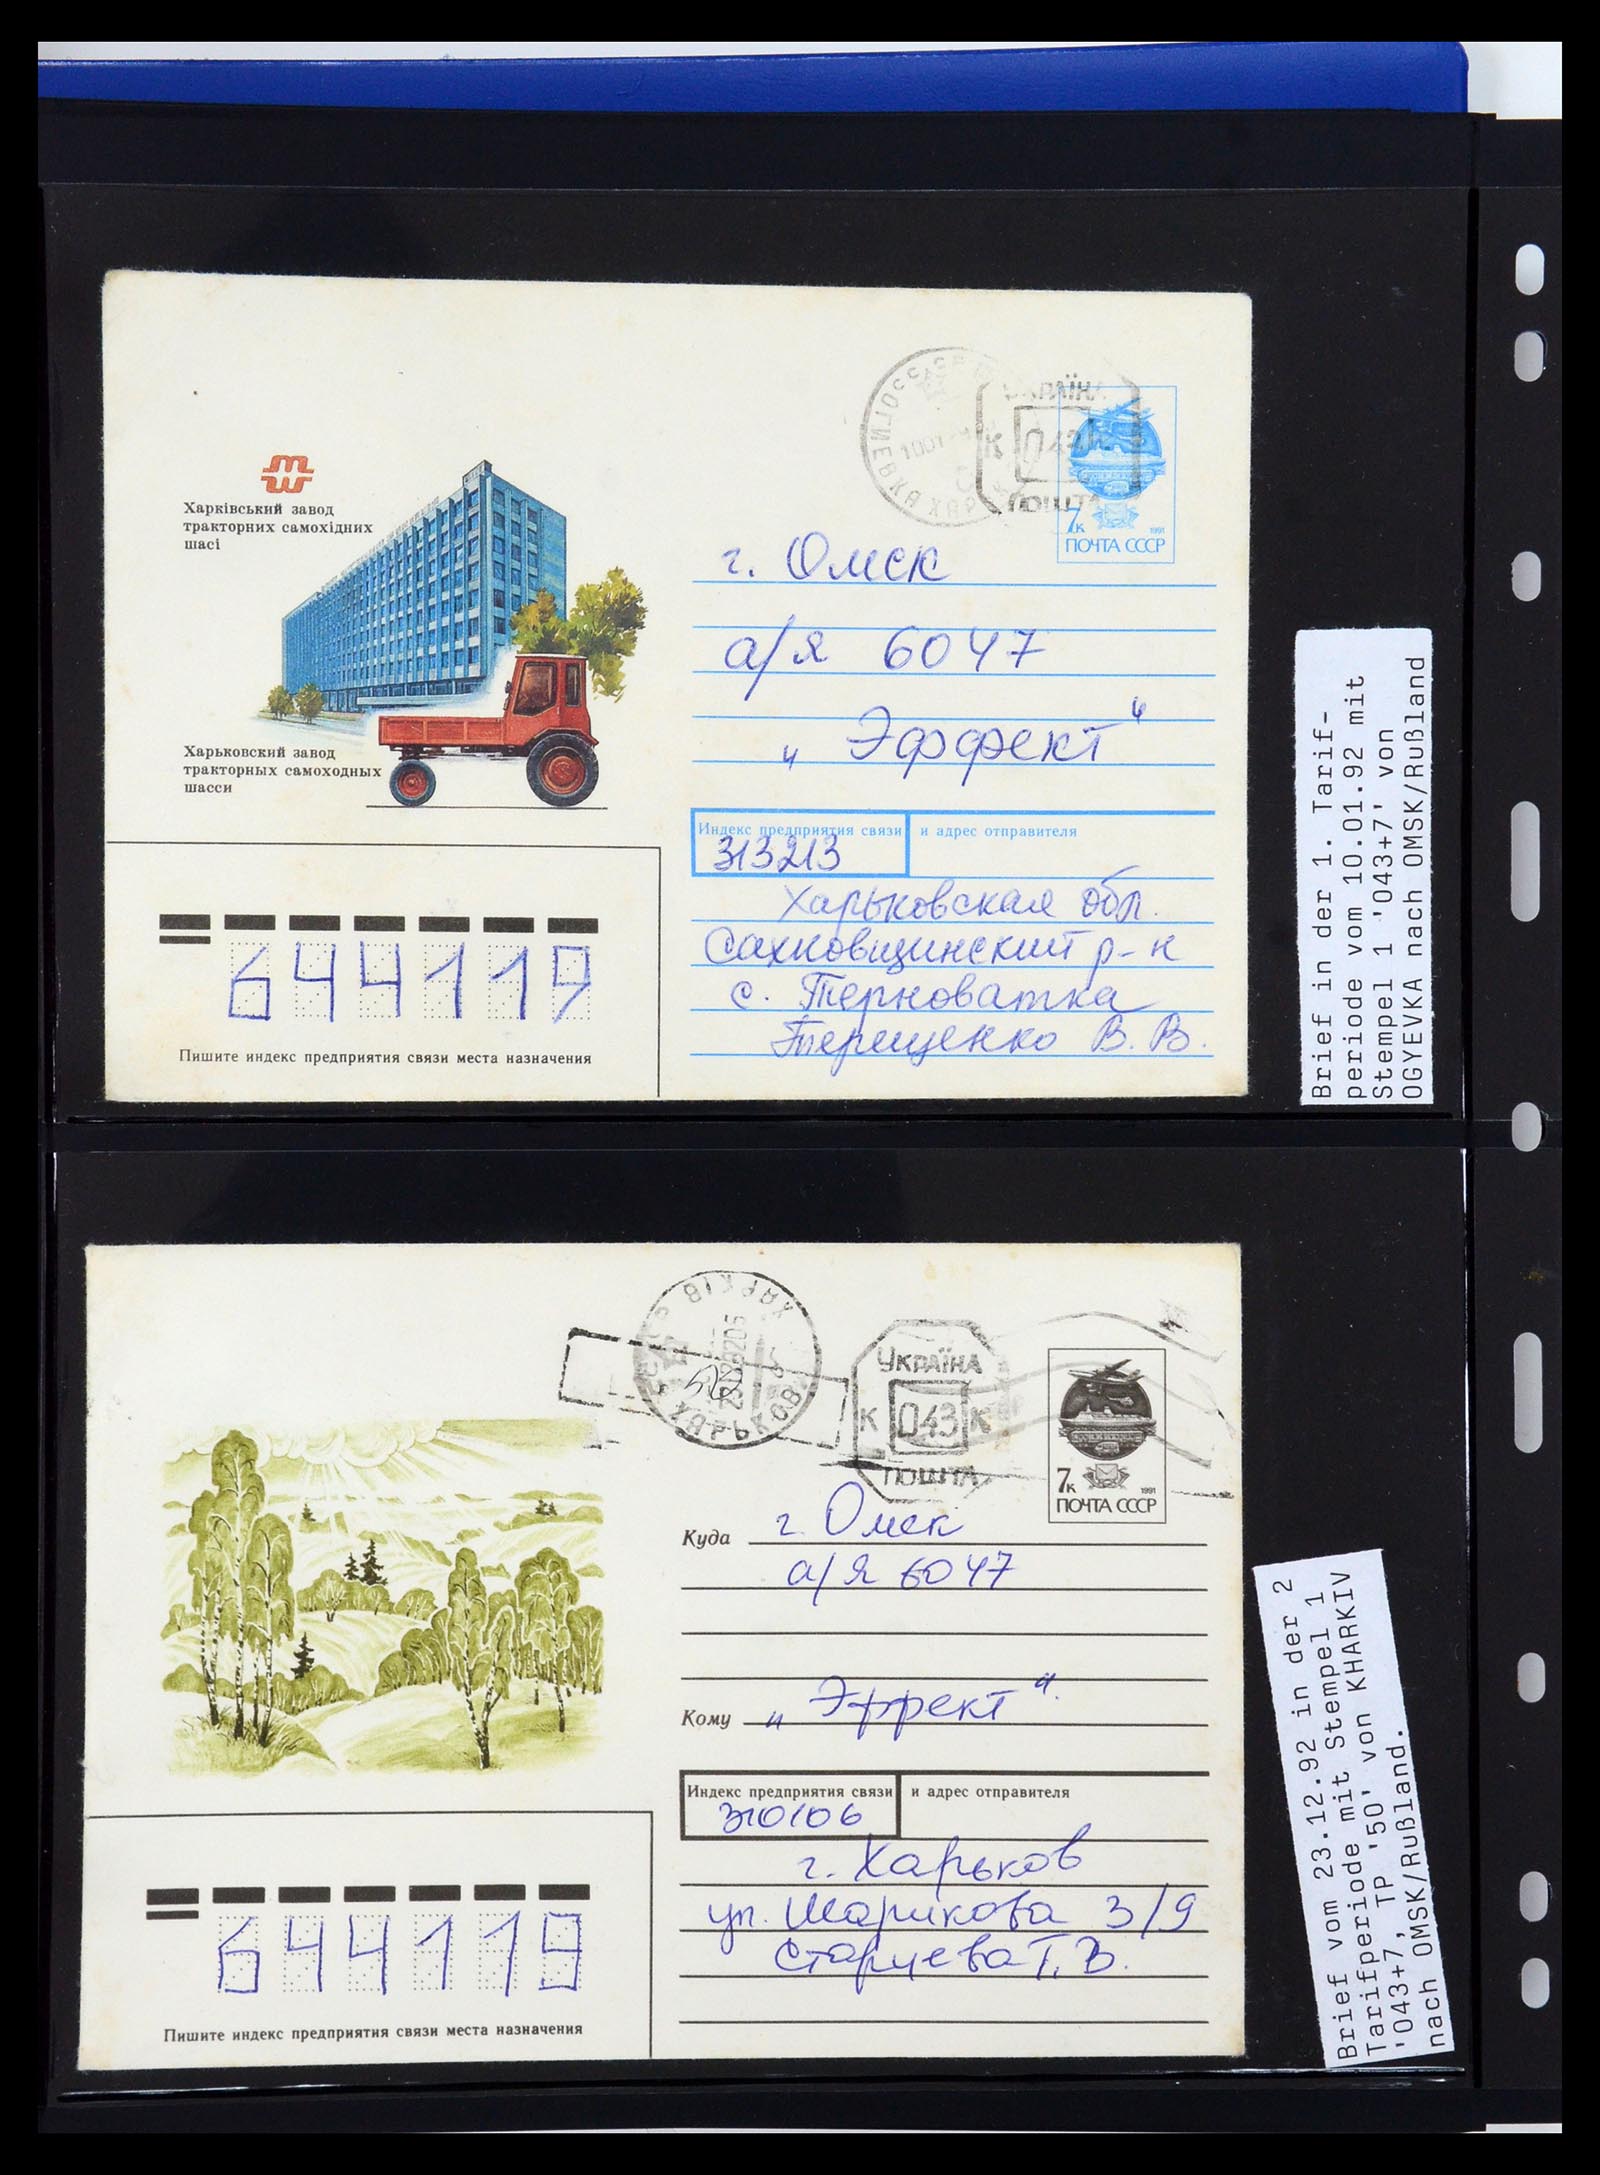 УКРАЇНА
К 043 К
ПОШТА
7к 1991
ПОЧТА СССР
Харківський завод
тракторних самохідних
шасі
Харьковский завод
тракторных самоходных
шасси
г. Омск
а/я 6047
„Эффект“
Индекс предприятия связи и адрес отправителя
313213
Харьковская обл.
Сахновщинский р-н
с. Терноватка
Терещенко В. В.
644119
Пишите индекс предприятия связи места назначения
Brief in der 1. Tarif-
periode vom 10.01.92 mit
Stempel 1 '043+7' von
OGYEVKA nach OMSK/Rußland
ХАРКІВ
ХАРЬКОВ
УКРАЇНА
К 043 К
ПОШТА
7к 1991
ПОЧТА СССР
Куда г. Омск
а/я 6047
Кому „Эффект“.
Индекс предприятия связи и адрес отправителя
310106
г. Харьков
ул. Шарикова 3/9
Старцева Т. В.
644119
Пишите индекс предприятия связи места назначения
Brief vom 23.12.92 in der 2
Tarifperiode mit Stempel 1
'043+7, TP '50' von KHARKIV
nach OMSK/Rußland.